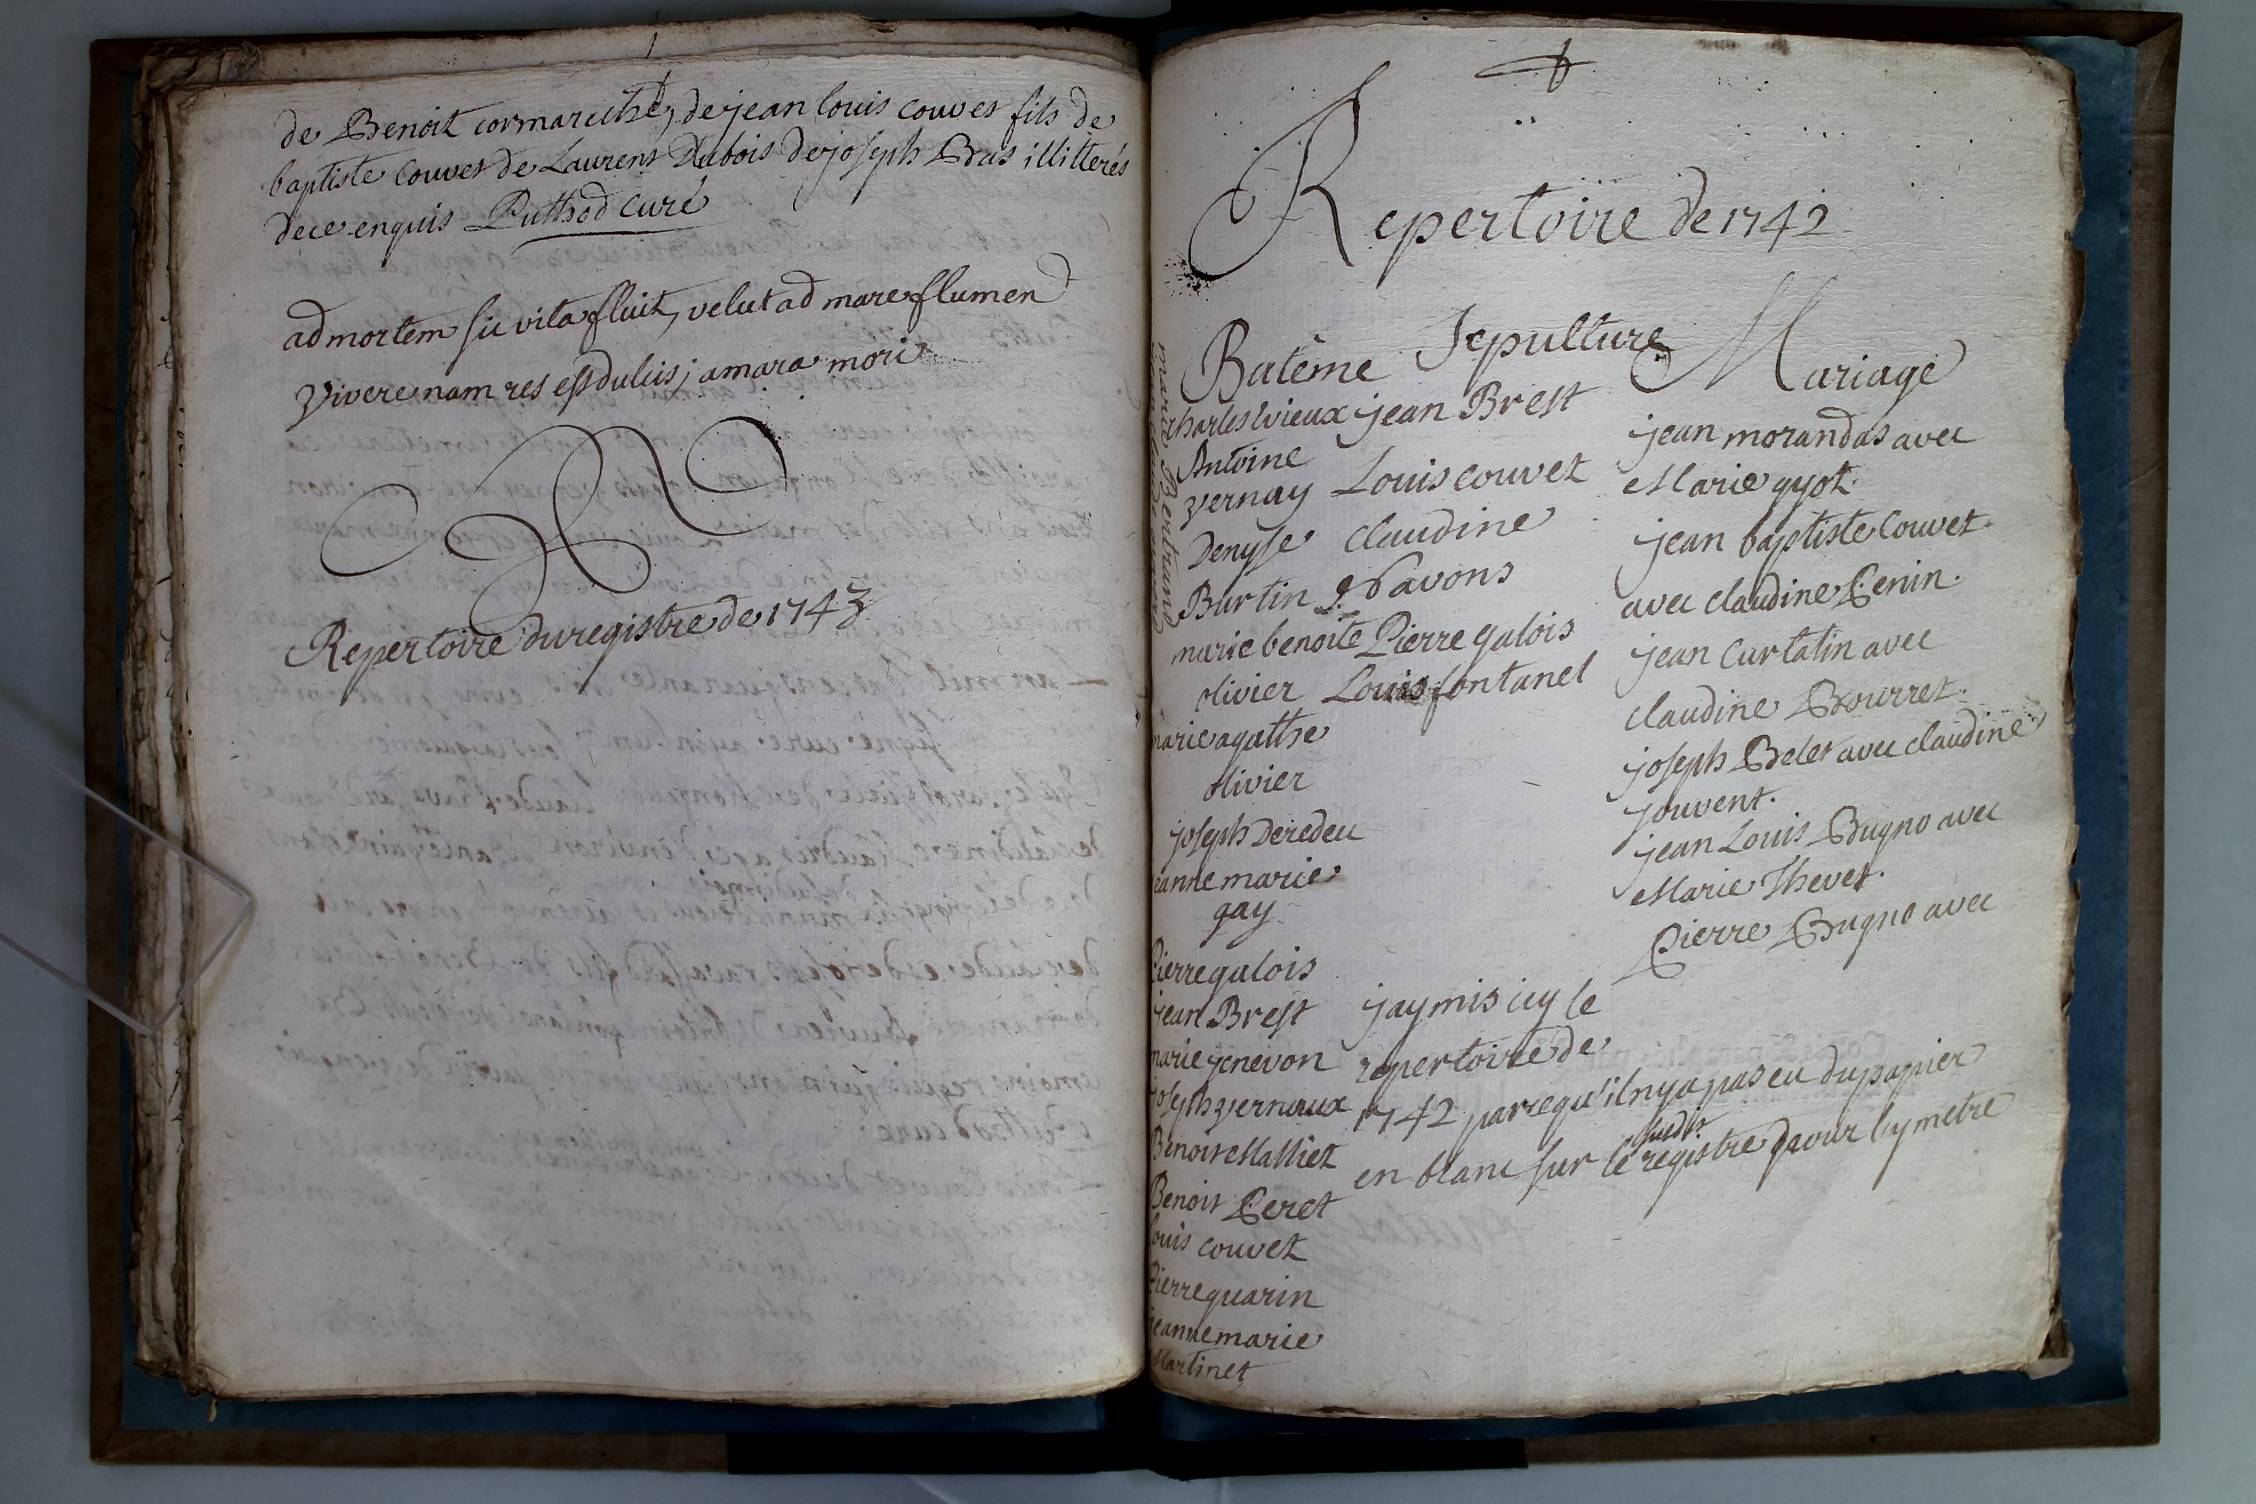 de Benoit cormareche, de jean louis couvet fils de
baptiste couvet de Laurent Dubois de joseph Bras illitterés
de ce enquis Puthod curé
ad mortem sic vita fluit, velut ad mare flumen
vivere nam res est dulcis; amara mori
Repertoire du registre de 1743
Repertoire de 1742
Batême
charles vieux
Antoine
vernay
Denyse
Burtin
marie benoite
olivier
marie agathe
olivier
joseph Deredeu
jeanne marie
gay
Pierre galois
jean Brest
marie jenevon
joseph vernaux
Benoit Malliet
Benoit Peret
louis couvet
Pierre guarin
jeanne marie
Martinet
marie Bertrand
Sepulture
jean Brest
Louis couvet
claudine
Pavons
Pierre galois
Louis fontanel
Mariage
jean morandas avec
Marie gyot.
jean baptiste Couvet
avec claudine Penin.
jean Curtatin avec
claudine Bourret.
joseph Belet avec claudine
jouvent.
jean Louis Bugno avec
Marie Thevet.
Pierre Bugno avec
jay mis icy le
repertoire de
1742 parcequ'il ny a pas eu du papier
en blanc sur le susdit registre pour ly metre